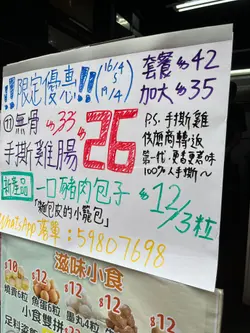 !!限定優惠!! (16/4 5 19/4)
套餐 $42
加大 $35
⑪ 無骨 $33 $26
手撕雞腸
P.S. 手撕雞
供應商轉返
第一代,更香更惹味
100%人手撕~
新產品 一口豬肉包子 $12/3粒
「麵包皮的小籠包」
WhatsApp 落單: 59807698
滋味小食
$10 $12 $12 $12
燒賣6粒 魚蛋6粒
小食雙拼